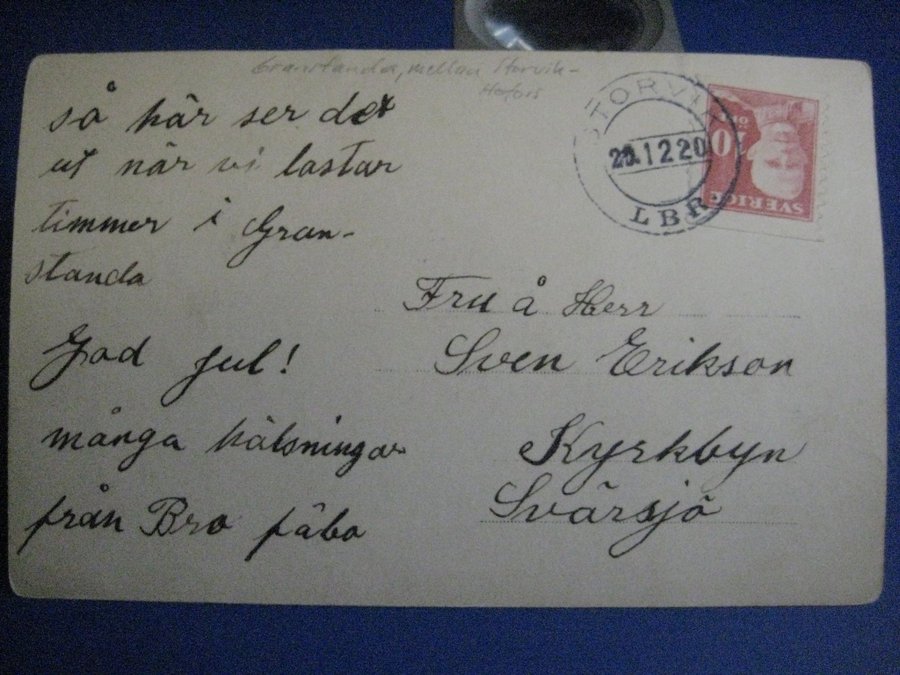 Granstanda, mellan Storvik-
Hofors
så här ser det
ut när vi lastar
timmer i Gran-
standa
God jul!
många hälsningar
från Bro fäbo
STORVIK
20.12 20
LBR
10
SVERIGE
Fru å Herr
Sven Erikson
Kyrkbyn
Svärsjö